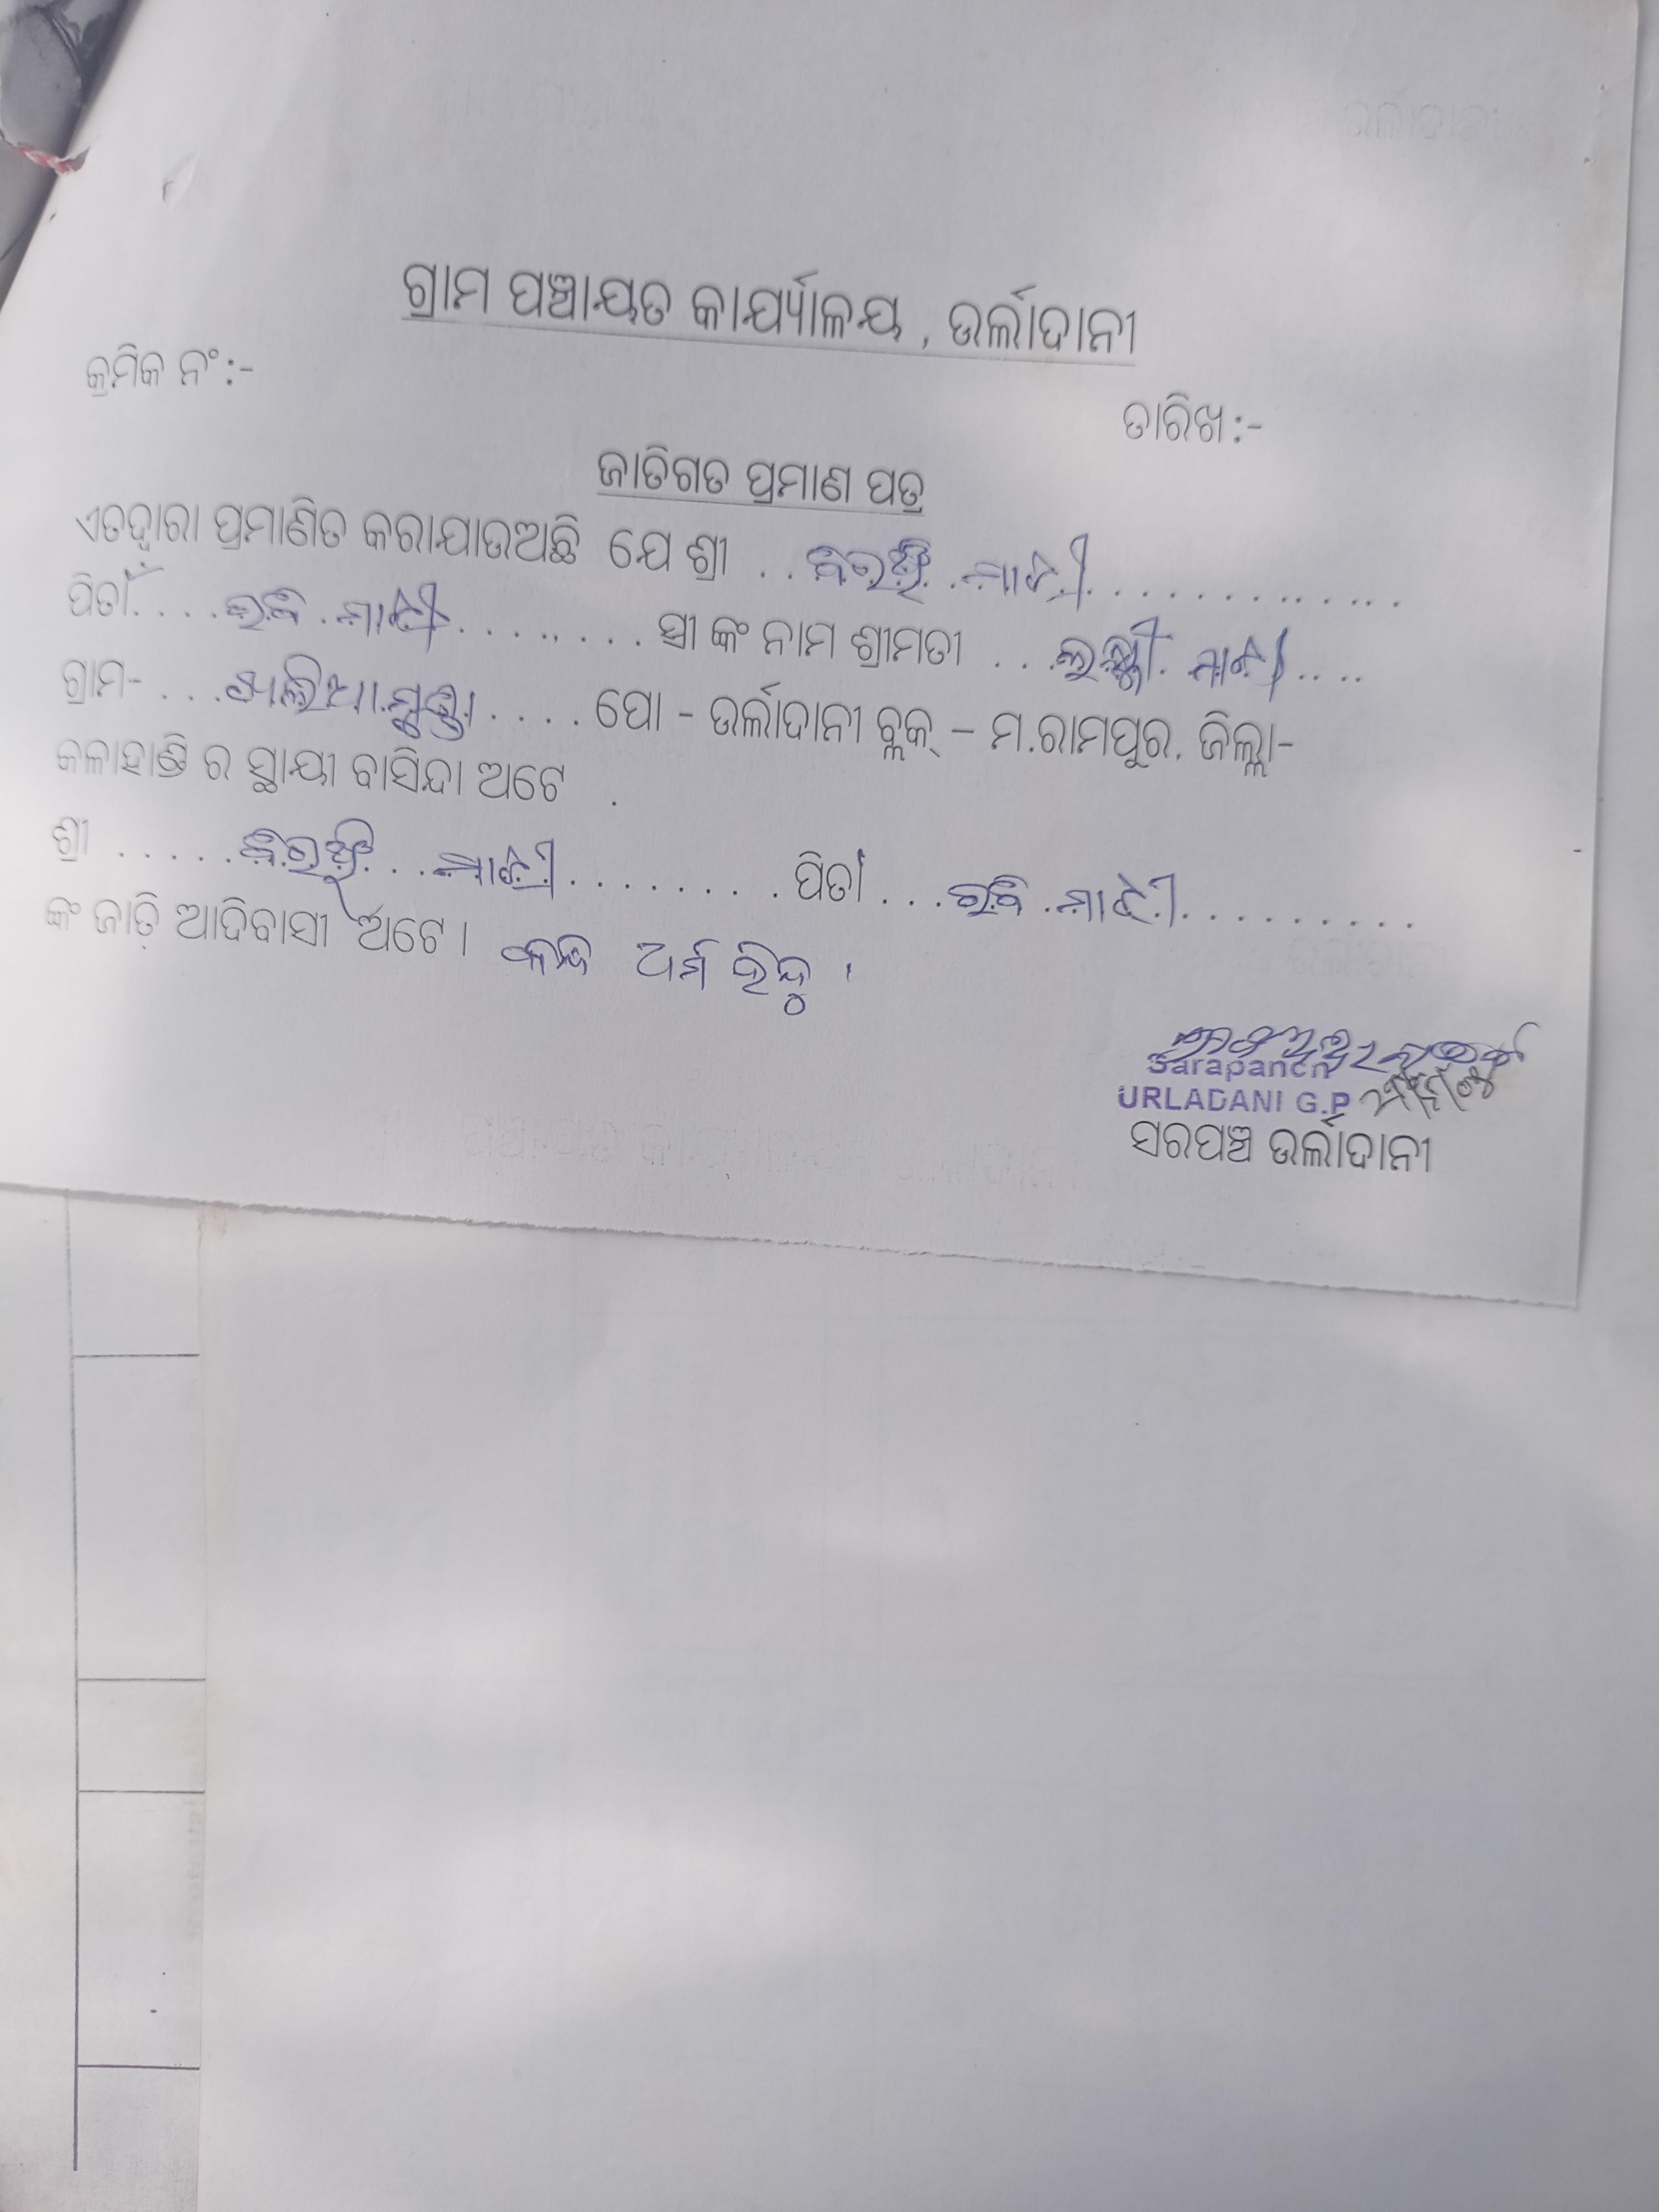 ଗ୍ରାମ ପଞ୍ଚାୟତ କାର୍ଯ୍ୟାଳୟ , ଉର୍ଲାଦାନୀ
କ୍ରମିକ ନଂ:-
ତାରିଖ:-
ଜାତିଗତ ପ୍ରମାଣ ପତ୍ର
ଏତଦ୍ୱାରା ପ୍ରମାଣିତ କରାଯାଉଅଛି ଯେ ଶ୍ରୀ .. ବିରଞ୍ଚି ମାଝୀ ..............
ପିତାଁ.... ରବି ମାଝୀ ........ ସ୍ତ୍ରୀ ଙ୍କ ନାମ ଶ୍ରୀମତୀ ... ଲକ୍ଷ୍ମୀ ମାଝୀ ....
ଗ୍ରାମ- ... ଖାଲିଆମୁଣ୍ଡା .... ପୋ - ଉର୍ଲାଦାନୀ ବ୍ଲକ୍ – ମ.ରାମପୁର. ଜିଲ୍ଲା-
କଳାହାଣ୍ଡି ର ସ୍ଥାୟୀ ବାସିନ୍ଦା ଅଟେ .
ଶ୍ରୀ ..... ବିରଞ୍ଚି ... ମାଝୀ ......... ପିତା ... ରବି ମାଝୀ ..........
ଙ୍କ ଜାତି ଆଦିବାସୀ ଅଟେ। କନ୍ଧ ଧର୍ମ ହିନ୍ଦୁ ।
Sarapanch
URLADANI G.P
ସରପଞ୍ଚ ଉର୍ଲାଦାନୀ